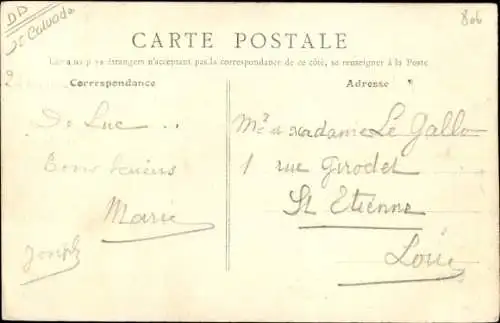 DD
Calvados
806
CARTE POSTALE
étrangers n'acceptant pas la correspondance de ce côté, se renseigner à la Poste
Correspondance
Adresse
De Luc ..
Bons baisers
Marie
Joseph
Mr et Madame Le Gallo
1 rue Girodet
St Etienne
Loire